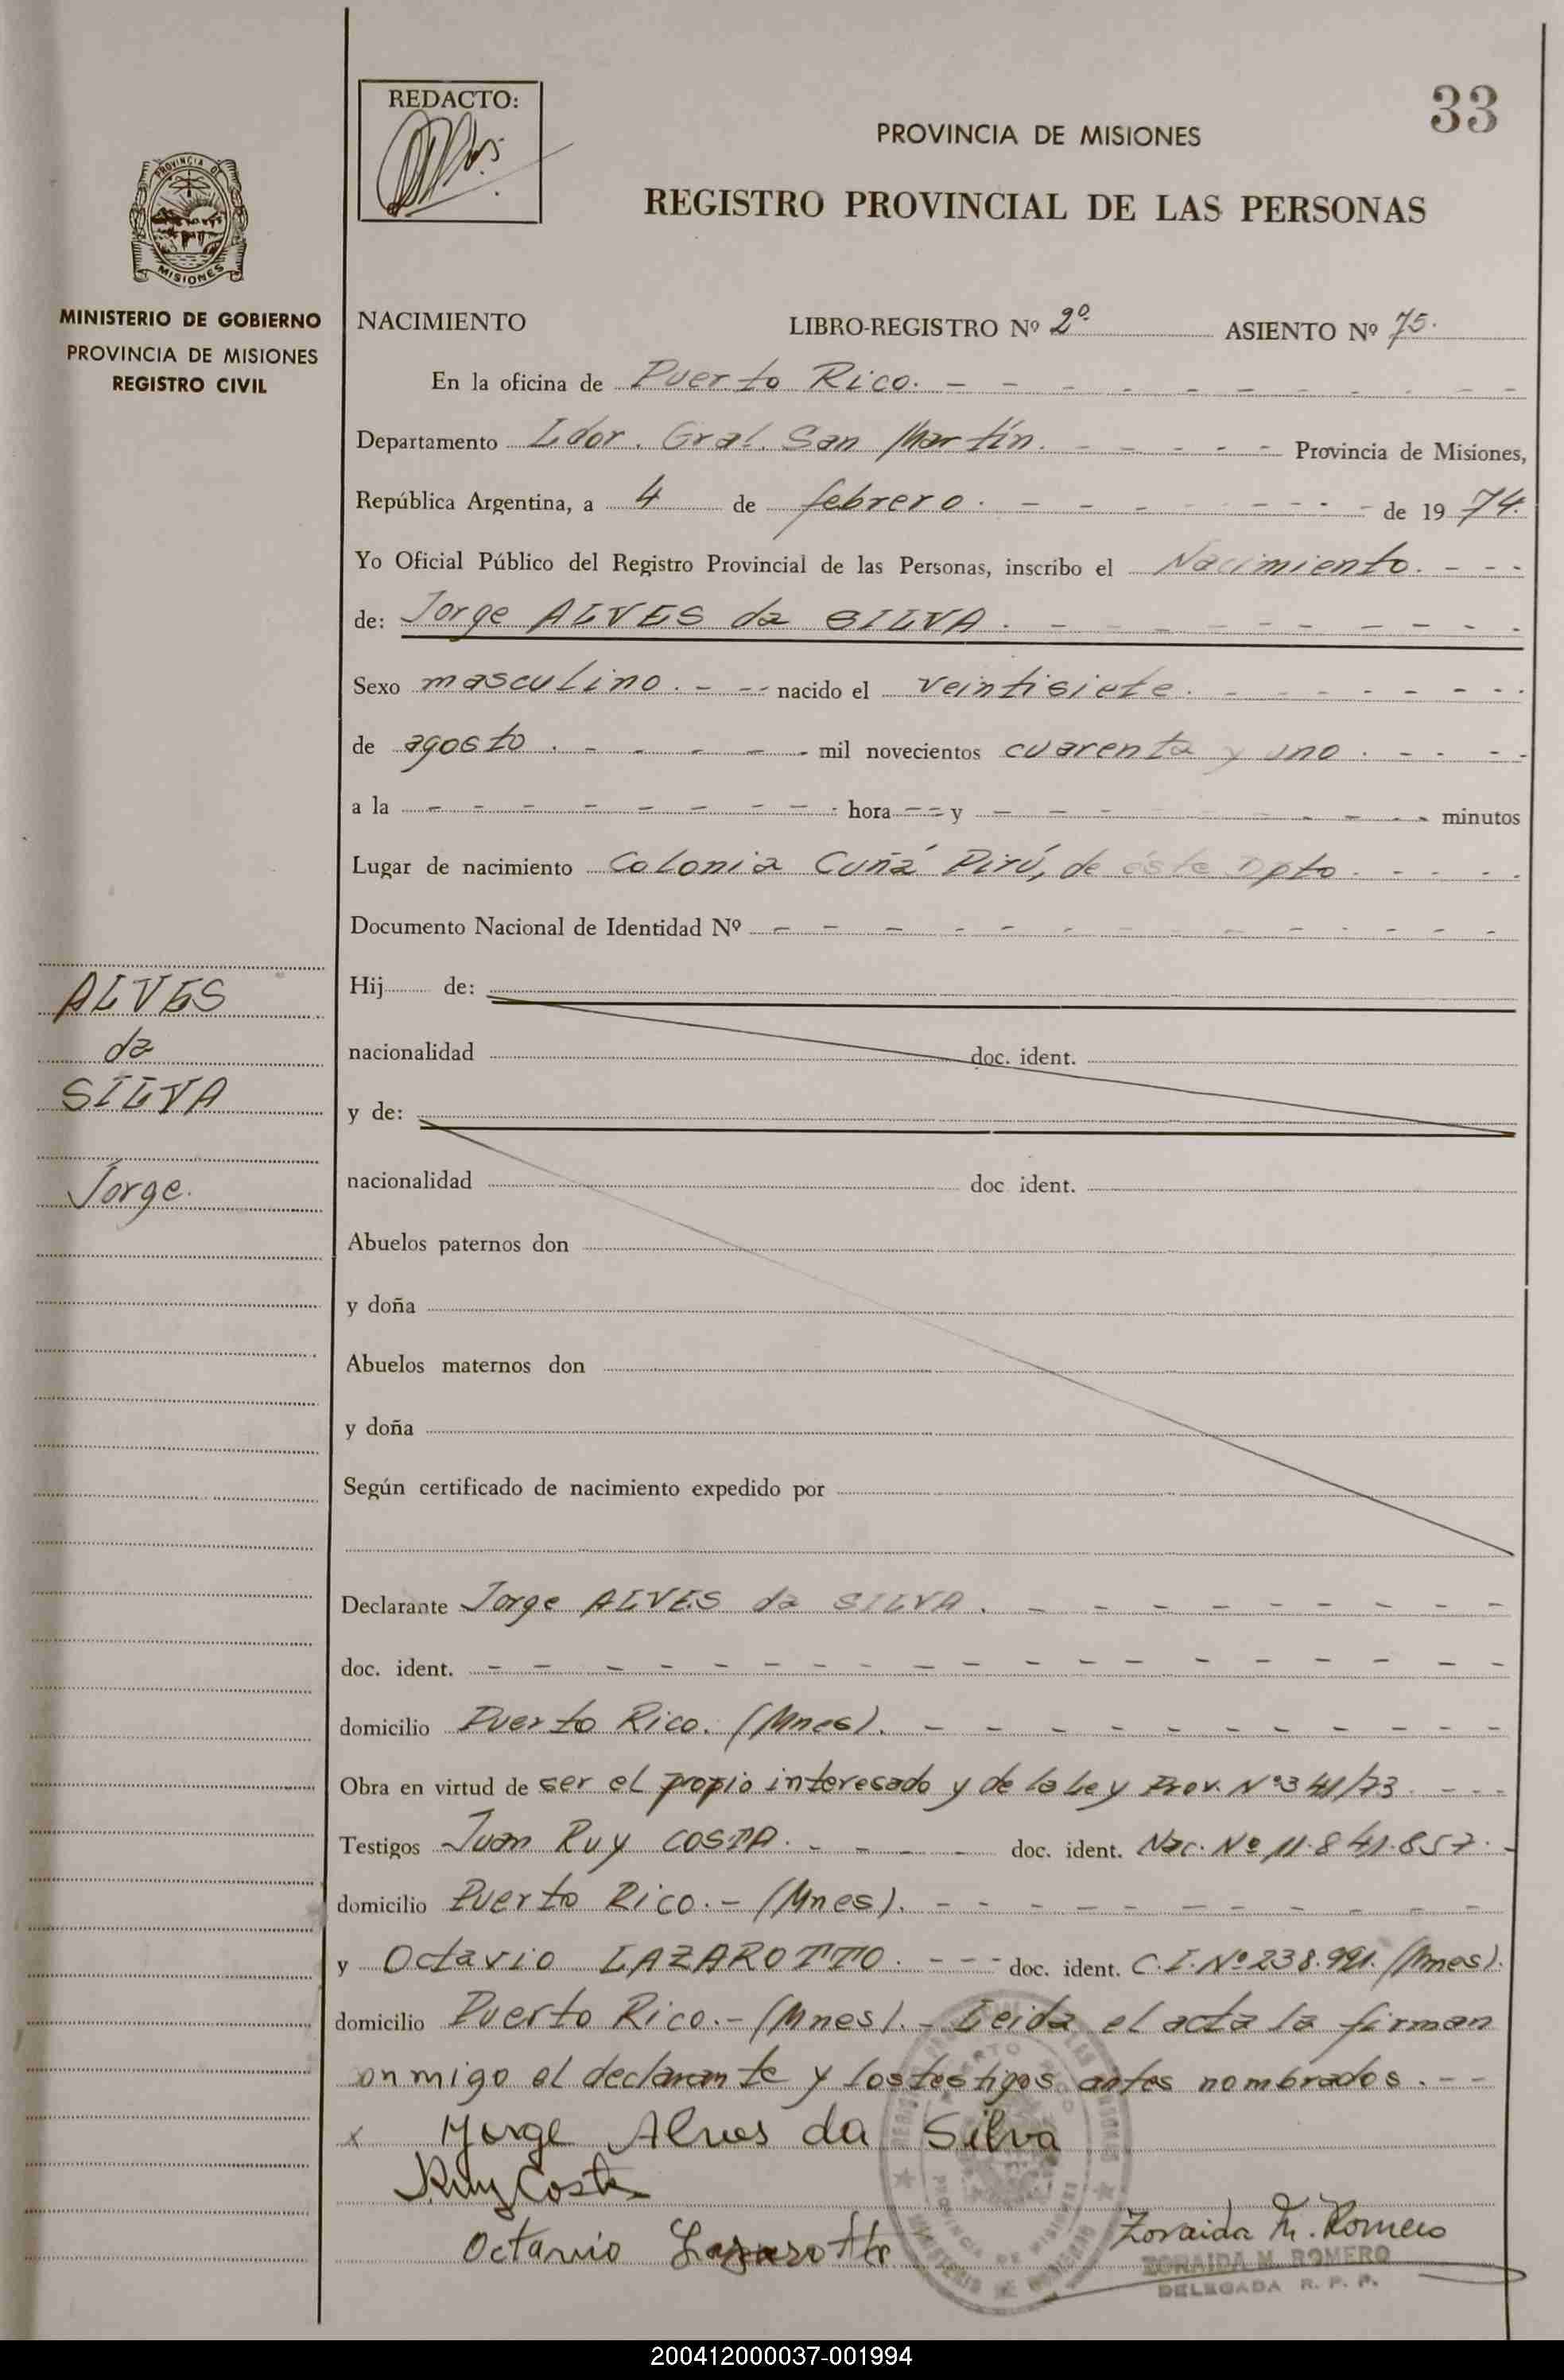 33
REDACTO:
PROVINCIA DE MISIONES
REGISTRO PROVINCIAL DE LAS PERSONAS
PROVINCIA D
MISIONES
MINISTERIO DE GOBIERNO
PROVINCIA DE MISIONES
REGISTRO CIVIL
NACIMIENTO LIBRO-REGISTRO Nº 2º ASIENTO Nº 75.
En la oficina de Puerto Rico.
Departamento Ldor. Gral. San Martín. Provincia de Misiones,
República Argentina, a 4 de febrero. de 19 74.
Yo Oficial Público del Registro Provincial de las Personas, inscribo el Nacimiento.
de: Jorge ALVES da SILVA.
Sexo masculino. nacido el veintisiete.
de agosto. mil novecientos cuarenta y uno.
a la hora y minutos
Lugar de nacimiento Colonia Cuñá Pirú, de éste Dpto.
Documento Nacional de Identidad Nº
Hij de:
nacionalidad doc. ident.
y de:
nacionalidad doc ident.
Abuelos paternos don
y doña
Abuelos maternos don
y doña
Según certificado de nacimiento expedido por
ALVES
da
SILVA
Jorge.
Declarante Jorge ALVES da SILVA.
doc. ident.
domicilio Puerto Rico. (Mnes).
Obra en virtud de ser el propio interesado y de la Ley Prov. Nº 341/73.
Testigos Juan Ruy COSTA. doc. ident. Nac. Nº 11.841.857.
domicilio Puerto Rico.- (Mnes).
y Octavio LAZAROTTO. doc. ident. C.I. Nº 238.991. (Mnes).
domicilio Puerto Rico.- (Mnes).- Leida el acta la firman
onmigo el declarante y los testigos antes nombrados.
x Jorge Alves da Silva
Ruy Costa
Octavio Lazarotto
Zoraida M. Romero
ZORAIDA M. ROMERO
DELEGADA R. P. P.
200412000037-001994